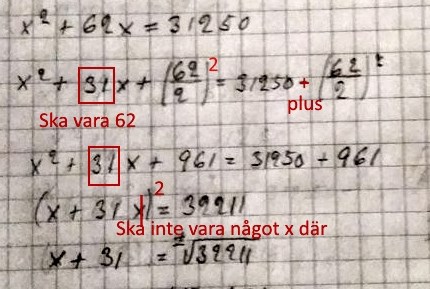 x² + 62x = 31250
x² + 31x + (62/2)² = 31250 + (62/2)²
plus
Ska vara 62
x² + 31x + 961 = 31250 + 961
(x + 31x)² = 32211
Ska inte vara något x där
x + 31 = ±√32211